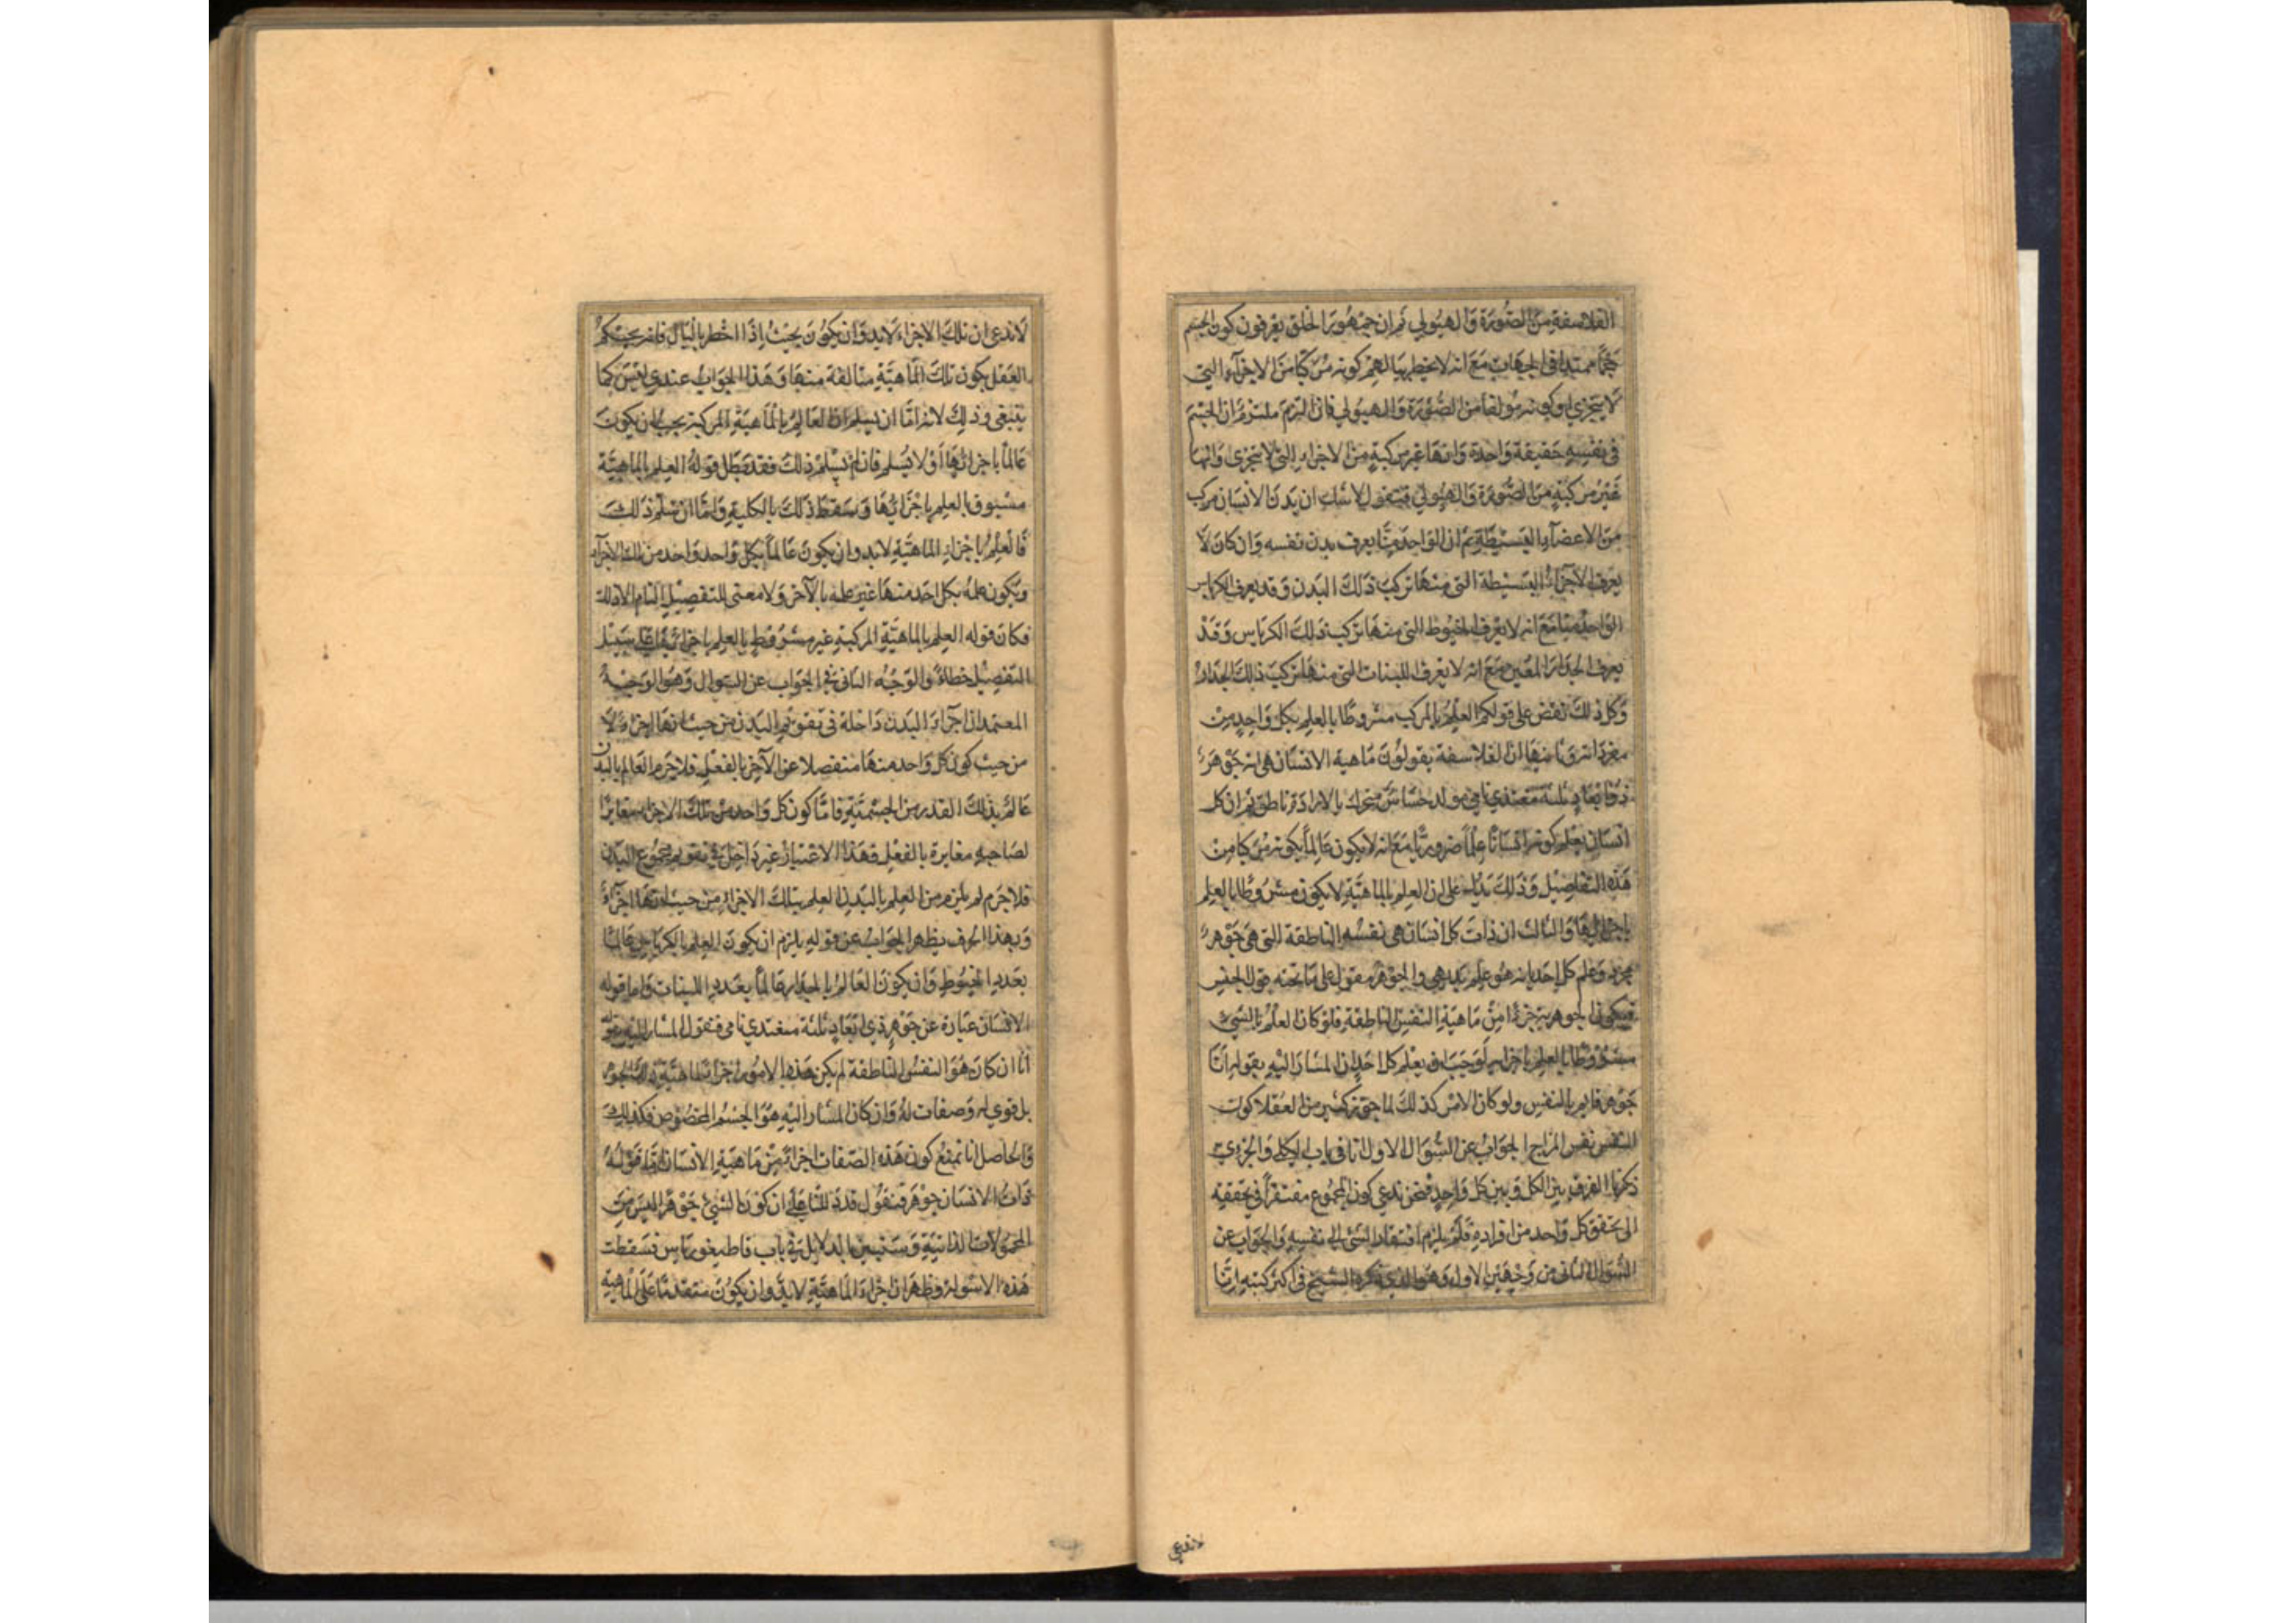 الفلاسفة من الصُّورَة وَالهيُولي ثم ان جمهُورَ الخلق يعرفون كون الجسم
حجمًا ممتدا في الجهات مَعَ انه لا يخطر ببالهم كونه مركبا من الاجزآء التي
لا يتجزي او كونه مؤلفا من الصُّورَة وَالهيولي فان التزم ملتزم ان الجسم
في نفسه حَقيقة وَاحدة وَانها غير مركبة من الاجزاء التي لا تتجزى وانها
غير مركبة من الصُّورَة وَالهيُولي فنقول لا شك ان بدن الانسان مركب
من الاعضآء البَسيطة ثم ان الوَاحد منّا يعرف بدن نفسه وَان كان لا
يعرف الاجزآء البَسيطة التي منهَا تركب ذلك البَدن وقد يعرف الكرباس
الوَاحد منا مَعَ انه لا يعرف الخيُوط التي منهَا تركب ذلك الكرباس وَقَد
يعرف الجدَار المعَين مَعَ انه لا يعرف اللبنات التي منهَا تركبَ ذلك الجدَار
وَكل ذلك نقض على قولكم العلم بالمركب مشروطًا بالعلم بكل وَاحدٍ من
مفرداته وثانيها ان الفلاسفة يقولوُن مَاهية الانسَان هي انه جَوْهَر
ذو ابعَاد ثلثة مغتذي نامي مولد حسَّاسٌ متحرك بالارادة ناطق ثم ان كل
انسَان يعلم كونه انسَانًا علمًا ضروريًّا مَعَ انه لا يكون عَالماً بكونه مركبا من
هَذه التفاصيل وَذلك يَدل على ان العلم بالماهيَّة لا يكون مشرُوطًا بالعلم
باجزائهَا وَالثالث ان ذات كل انسَان هي نفسُه الناطقة التي هي جَوْهر
مجرد وَعلم كل احَد بانه هُو علم بَديهي والجوهر مقول على مَا تحته قول الجنس
فيكون الجوهرية جزءًا من مَاهيَة النفس الناطقة فلو كان العلم بالشيء
مشروطًا بالعلم باجزائه لوَجَبَ ان يعلم كل احَدٍ ان المشَارَ اليه بقوله انا
جَوْهر قايم بالنفس ولو كان الامر كذلك لما جوّز كثير من العُقلا كون
النفس نفس المزاج الجوَابُ عن السُّوَال الاول انا في باب الكلي وَالجزوي
ذكرنا الفرق بين الكل وَبين كل وَاحدٍ فنحن ندعي كون المجمُوع مفتقرًا في تحققه
الى تحقق كل وَاحد من افراده فَلَم يلزم افتقار الشيء الى نفسه وَالجوَاب عن
السُّوَال الثاني من وَجهَين الاول وَهُو الذي ذكره الشيخ في اكثر كتبه انا
لا ندعي
لا ندعي ان تلك الاجزاء لا بد وَان يكوُنَ بحيث اِذَا اخطر بالبَال فانه يحكم
العَقل بكون تلك الماهيَّة متالفة منهَا وَهَذا الجوَابُ عندي ليسَ كما
ينبغي وذلك لانه امّا ان يسلم ان العَالم بالماهيَّة المركبة يجب ان يكون
عَالماً باجزائهَا أوْ لا يُسلم فان لم يُسلِّم ذلك فقد بَطل قوله العلم بالماهيَّة
مسبوق بالعلم باجزَائهَا وَسَقط ذلك بالكلية وَامّا ان سَلم ذلك
فالعلم باجزاء الماهيَّة لا بد وان يكون عَالماً بكل وَاحد وَاحد من تلك الاجزآء
ويكون علمه بكل احَد منها غير علمه بالآخر وَلا معنى للتفصيل التام الا ذلك
فكان قوله العلم بالماهيَّة المركبة غير مشروط بالعلم باجزائهَا على سَبيل
التفصيل خطاءً وَالوَجْه الثاني في الجوَاب عن السؤال وَهُو الوَجهُ
المعتمد ان اجزآء البَدن دَاخلة في تقويم البَدن من حيث انها اجزاءٌ لا
من حيث كون كل وَاحد منها منفصلا عن الآخر بالفعل فلا جَرم العَالم بالبدن
عَالم بذلك القدر من الجسميَّة فامّا كون كل وَاحد من تلك الاجزاء مغايرا
لصَاحبه مغايرة بالفعل فهَذا الامتياز غير دَاخل في تقويم مجمُوع البَدن
فلا جَرم لم يلزم من العلم بالبَدن العلم بتلك الاجزاءِ من حيث انهَا اجزآء
وَبهذا الحرف يظهر الجوَابُ عن قوله يلزم ان يكون العلم بالكرباس عَالمًا
بعَدد الخيُوط وَان يكونَ العَالم بالجدَار عَالمًا بعَدد اللبنات وَاما قوله
الانسَان عبَارة عن جَوْهرٍ ذي ابعَادٍ ثلثة مغتذي نامي فنقول المشار اليه بقوله
انا ان كان هُوَ النفسُ الناطقة لم يكن هَذه الامُور اجزاءً لماهيَّة ذلك الجوهر
بل قوي له وَصفات لهُ وَان كان المشار اليه هُوَ الجسْم المخصُوص فكذلك
وَالحاصل انا نمنع كون هَذه الصّفات اجزاءً من مَاهيَّة الانسَان وَاما قولهُ
ذات الانسَان جَوْهَر فنقُول قد دَلّلنا على ان كونَ الشيء جَوْهَرًا ليسَ من
المحمُولات الذاتيَّة وَسَنبيّن بالدلايل في باب قاطيغورياس فسَقطت
هَذه الاسولة وظهَر ان اجزاءَ الماهيَّة لا بد وان يكوُن متقدمًا عَلَى الماهية